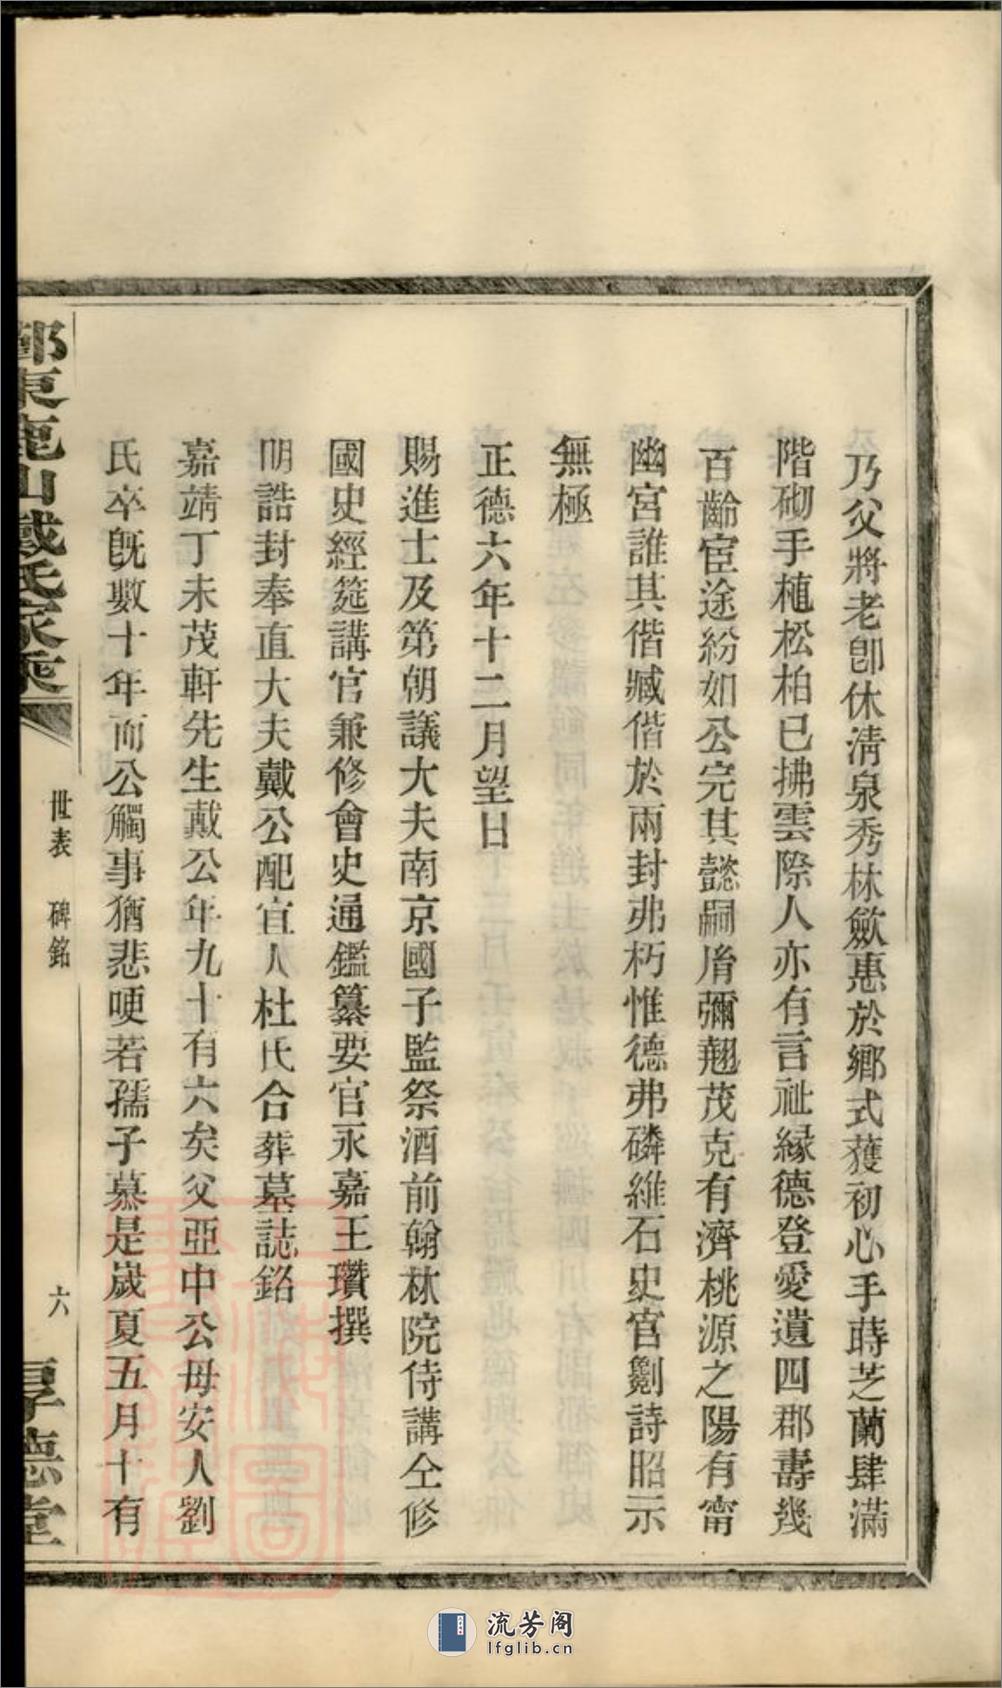 乃父將老卽休淸泉秀林歛惠於鄉式獲初心手蒔芝蘭肆滿
階砌手植松柏已拂雲際人亦有言祉緣德登愛遺四郡壽幾
百齡宦途紛如公完其懿嗣胤彌翹茂克有濟桃源之陽有甯
幽宮誰其偕臧偕於兩封弗朽惟德弗磷維石史官劖詩昭示
無極
正德六年十二月望日
賜進士及第朝議大夫南京國子監祭酒前翰林院侍講仝修
國史經筵講官兼修會史通鑑纂要官永嘉王瓚撰
明誥封奉直大夫戴公配宜人杜氏合葬墓誌銘
嘉靖丁未茂軒先生戴公年九十有六矣父亞中公母安人劉
氏卒旣數十年而公觸事猶悲哽若孺子慕是歲夏五月十有
鄞東鹿山戴氏家乘
世表 碑銘
六
厚德堂
流芳阁
lfglib.cn